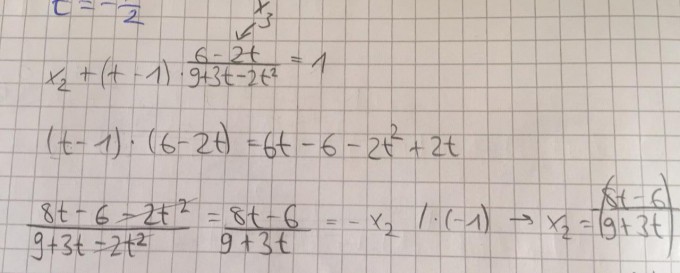 t = -\frac{}{2}
x_3
x_2 + (t - 1) \cdot \frac{6 - 2t}{9 + 3t - 2t^2} = 1
(t - 1) \cdot (6 - 2t) = 6t - 6 - 2t^2 + 2t
\frac{8t - 6 - 2t^2}{9 + 3t - 2t^2} = \frac{8t - 6}{9 + 3t} = -x_2 / \cdot (-1) → x_2 = \left(\frac{8t - 6}{9 + 3t}\right)